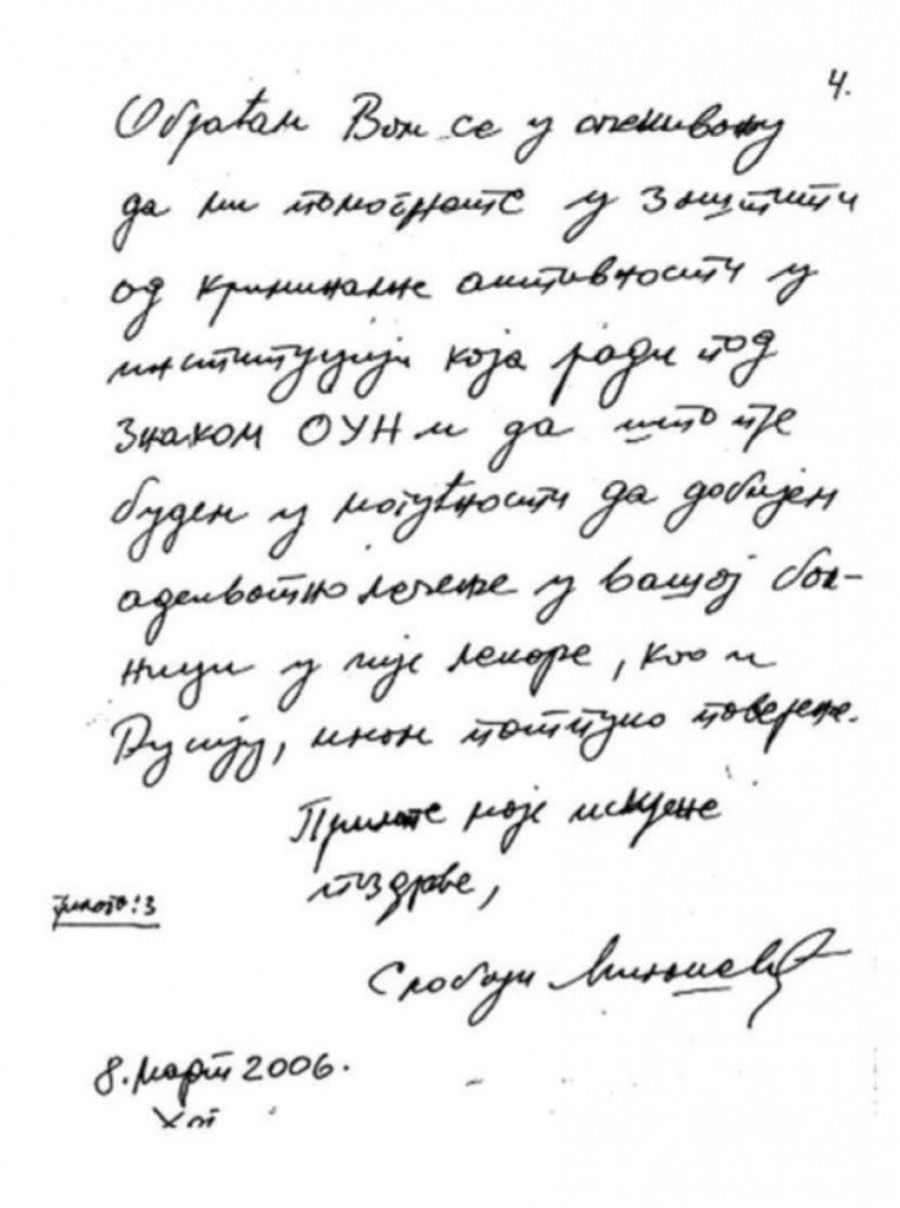 4.
Обраћам Вам се у очекивању
да ми помогнете у заштити
од криминалне активности у
институцији која ради под
знаком ОУН и да што пре
будем у могућности да добијем
адекватно лечење у вашој бол-
ници у чије лекаре, као и
Русију, имам потпуно поверење.
Примите моје искрене
поздраве,
прилога: 3
Слободан Милошевић
8. март 2006.
Хаг